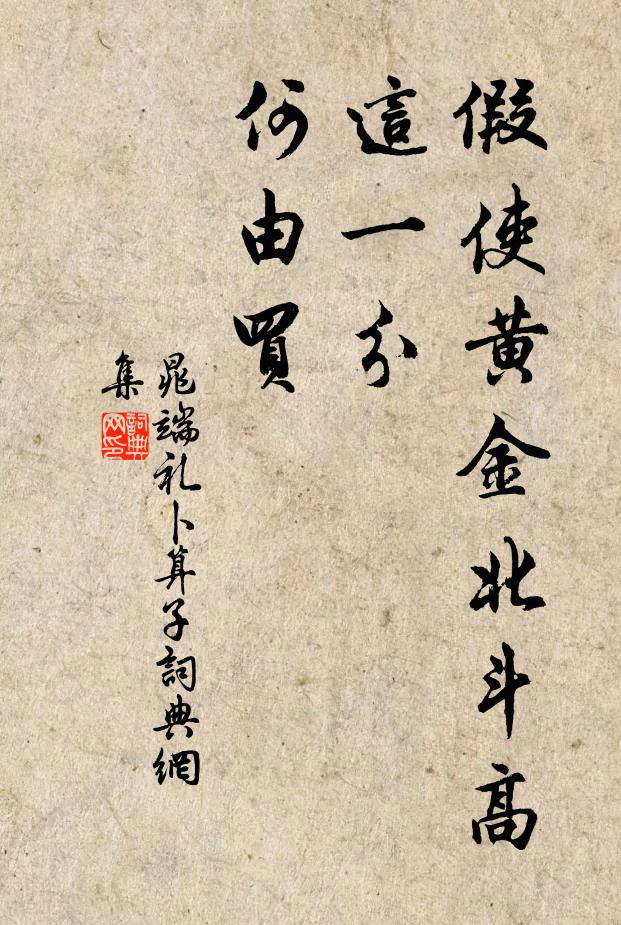 假使黄金北斗高
這一分
何由買
晁端礼卜算子詞典網
集
詞典
网印